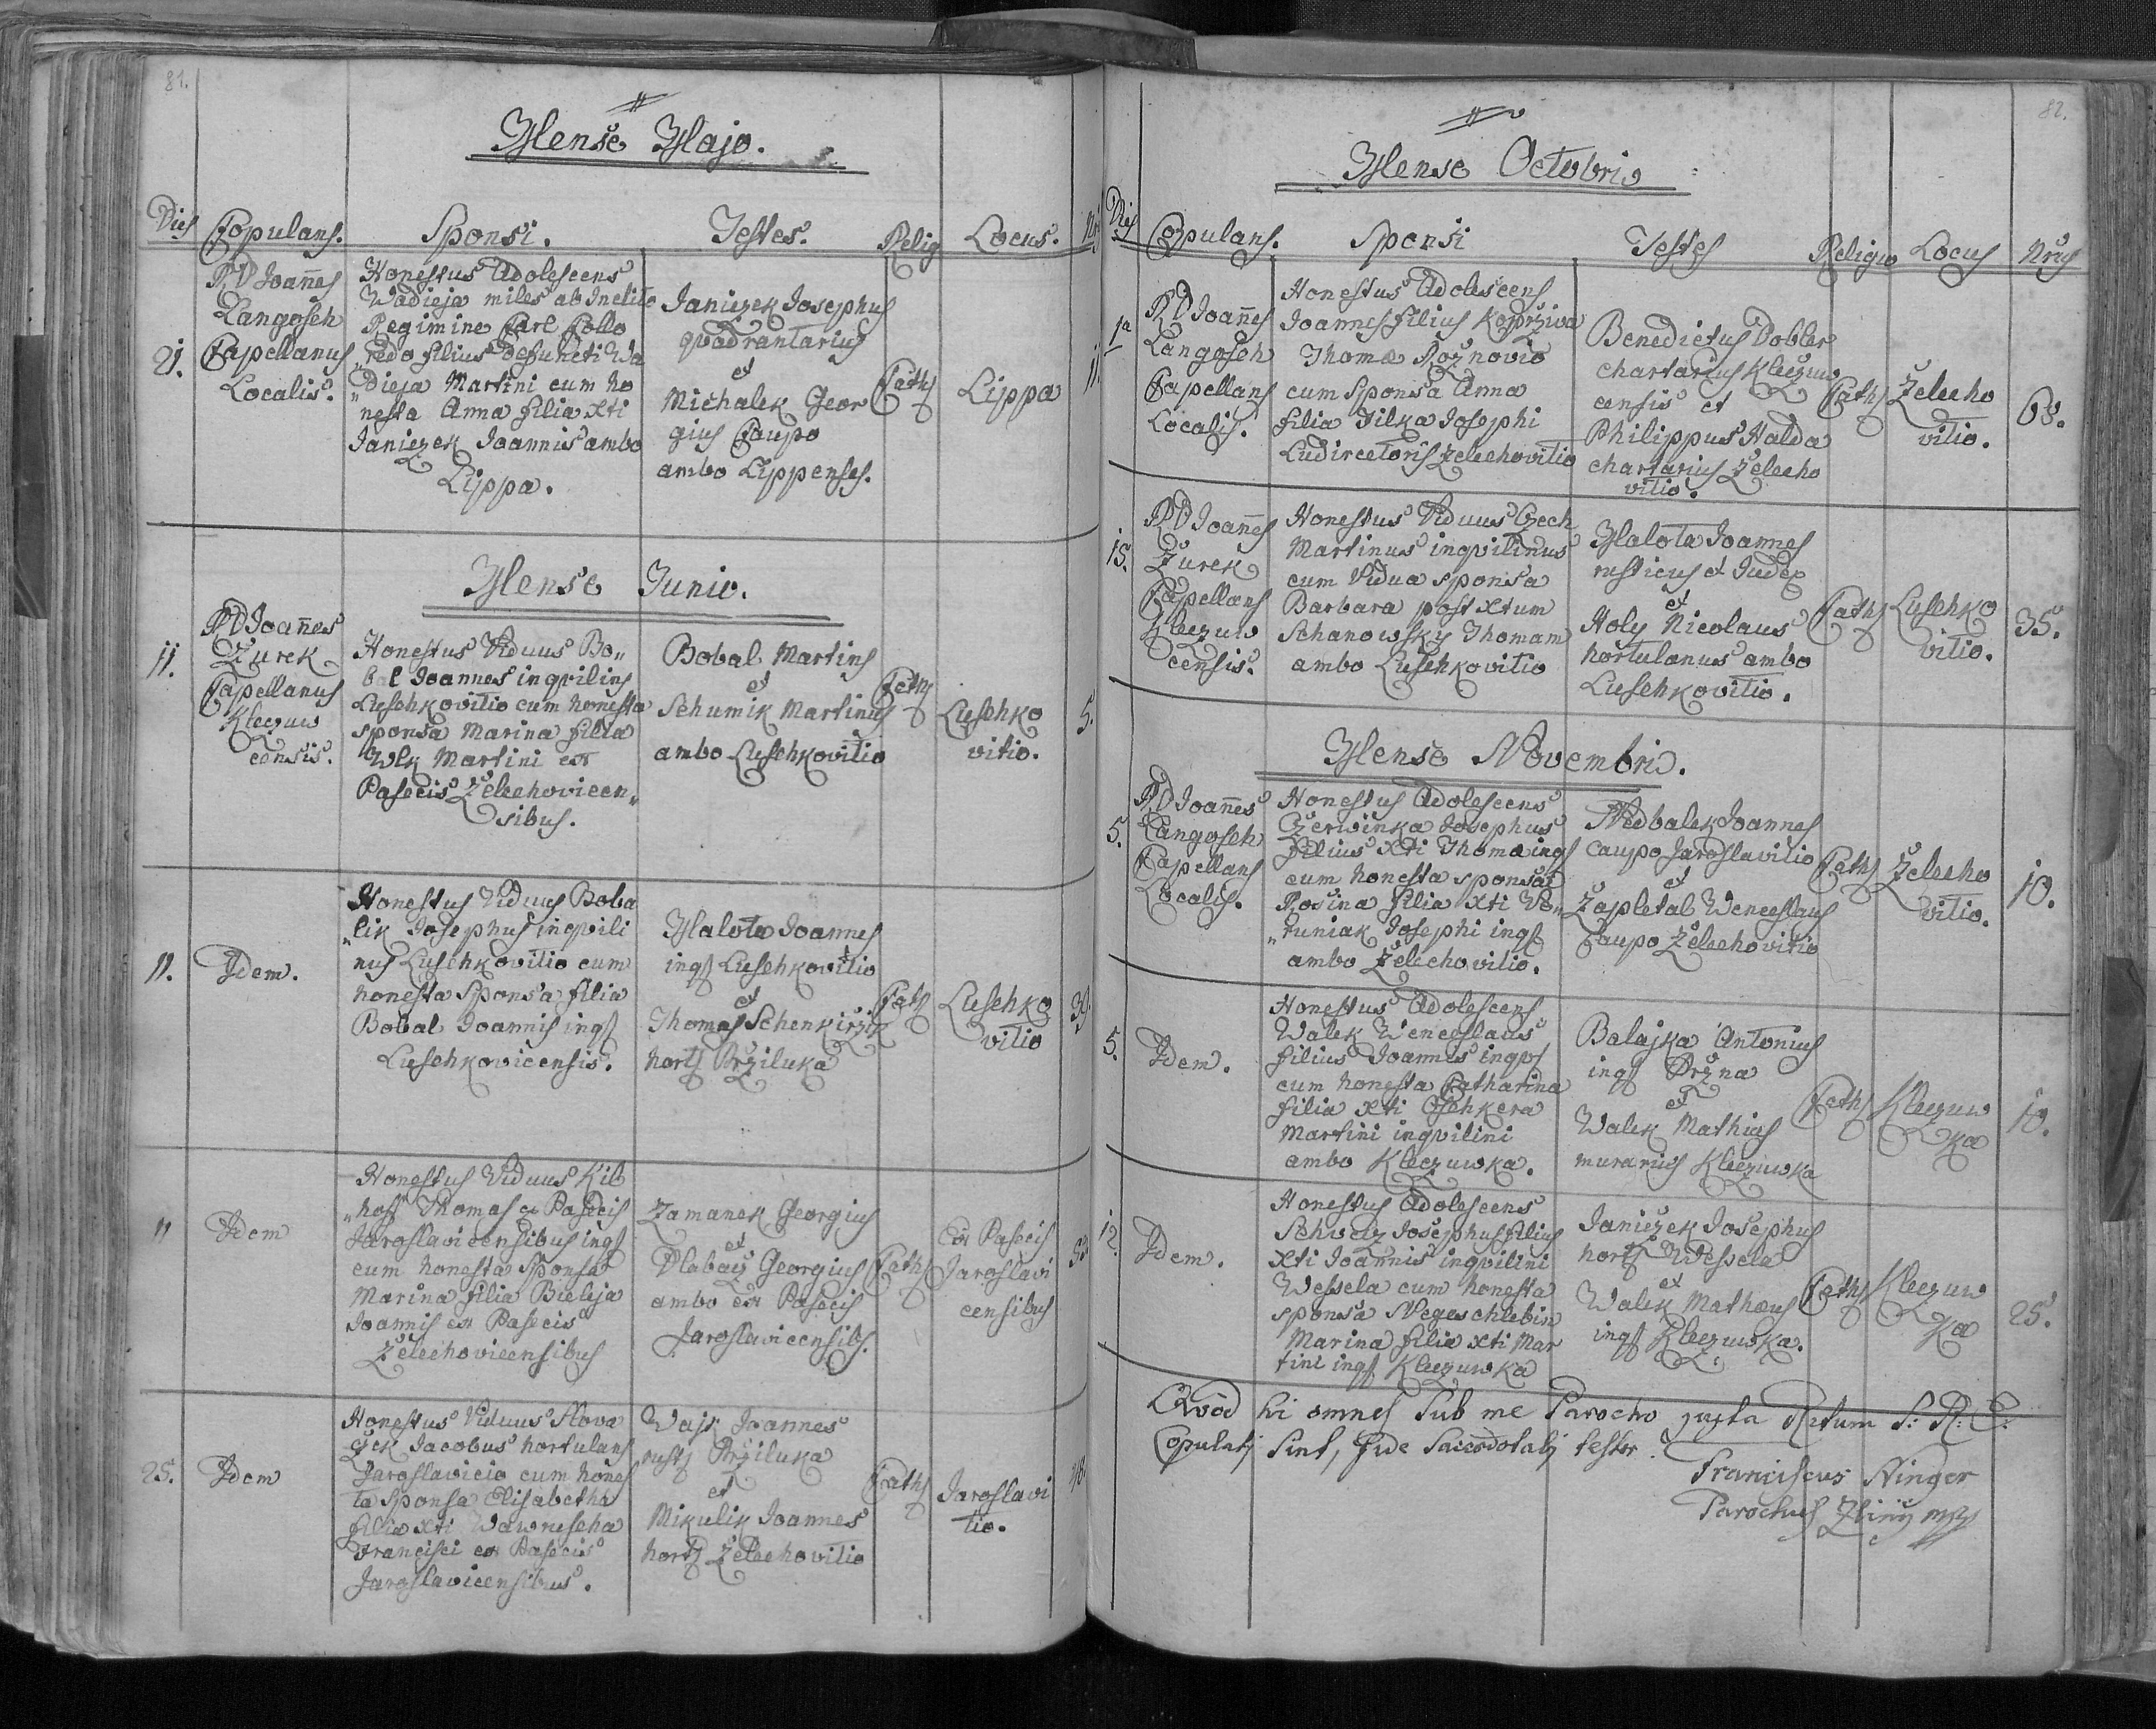 81.
Mense Majo.
Dies Copulans. Sponsi. Testes. Relig Locus. Nrs
21.
RD Joañes
Langosch
Capellanus
Localis.
Honestus Adolescens
Wadieja miles ab Inclito
Regimine Carl Collo
„redo filius defuncti Wa
„dieja Martini cum ho
nesta Anna filia xti
Janiczek Joannis ambo
Lippa.
Janiczek Josephus
quadrantarius
et
Michalek Geor
gius Caupo
ambo Lippenses.
Caths
Lippa
11.
Mense Junio.
11.
RD Joañes
Žurek
Capellanus
Kleczuw
censis.
Honestus Viduus Bo„
bal Joannes inqvilins
Luschkovitio cum honesta
sponsa Marina filia
Wlk Martini ex
Pasecis Želechovicen„
sibus.
Bobal Martins
et
Schumik Martinus
ambo Luschkovitio
Caths
Luschko
vitio.
5.
11.
Idem.
Honestus Viduus Boba
„lik Josephus inqvili
nus Luschkovitio cum
honesta Sponsa filia
Bobal Joannis inqs
Luschkovicensis.
Malota Joannes
inqs Luschkovitio
et
Thomas Schenkirzik
horts Pržiluka
Caths
Luschko
vitio
39.
11
Idem
Honestus Viduus Kil
„hoff Thomas ex Pasecis
Jaroslavicensibus inqs
cum honesta Sponsa
Marina filia Bieleja
Joannis ex Pasecis
Želechovicensibus
Zamanek Georgius
et
Dlabaij Georgius
ambo ex Pasecis
Jaroslavicensibs.
Caths
Ex Pasecis
Jaroslavi
censibus
25.
Idem
Honestus Viduus Slova
czek Jacobus hortulans
Jaroslavicio cum hones
ta Sponsa Elisabetha
filia xti Wawruscha
Francisci ex Pasecis
Jaroslavicensibus.
Wajs Joannes
rusts Pržiluka
et
Mikulik Joannes
horts Želechovitio
Caths
Jaroslavi
tio.
82.
Mense Octobris
Dies Copulans. Sponsi Testes Religio Locus Nrus
1a
RD Joañes
Langosch
Capellans
Localis.
Honestus Adolescens
Joannes filius Koprživa
Thomæ Rožnovio
cum Sponsa Anna
filia Jilka Josephi
Ludirectoris Zelechovitio
Benedictus Dobler
chartarius Kleczuw
censis et
Philippus Halda
chartarius Želecho
vitio.
Caths
Želecho
vitio.
68.
15.
RD Joañes
Žurek
Capellans
Kleczuw
censis.
Honestus Viduus Czech
Martinus inqvilinus
cum Vidua sponsa
Barbara post xtum
Schanowsky Thomam
ambo Luschkovitio
Malota Joannes
rusticus et Judex
et
Holy Nicolaus
hortulanus ambo
Luschkovitio.
Caths
Luschko
vitio.
35.
Mense Novembris.
5.
RD Joañes
Langosch
Capellans
Localis.
Honestus Adolescens
Czerwinka Josephus
filius xti Thomæ inqs
cum honesta sponsa
Rosina filia xti Vo„
„runiak Josephi inqs
ambo Želechovitio.
Nedbalek Joannes
caupo Jaroslavitio
et
Zapletal Wenceslaus
Caupo Želechovitio
Caths
Želecho
vitio.
10.
5.
Idem.
Honestus Adolescens
Walek Wenceslaus
filius Joannis inqvs
cum honesta Catharina
filia xti Oschkera
Martini inqvilini
ambo Kleczuwka.
Balajka Antonius
inqs Pržna
et
Walek Mathias
murarius Kleczuwka
Caths
Kleczuw
ka
10.
12.
Idem.
Honestus Adolescens
Schweiz Josephus filius
xti Joannis inqvilini
Wessela cum honesta
sponsa Negeschlebin
Marina filia xti Mar
tini inqs Kleczuwka
Janiczek Josephus
horts Wessela
et
Walek Mathæus
inqs Kleczuwka.
Caths
Kleczuw
ka
25.
Qvod hi omnes sub me Parocho juxta Ritum S: R: E:
Copulatj sint, fide Sacerdotalj testor.
Franciscus Ninger
Parochus Zlinij mpp